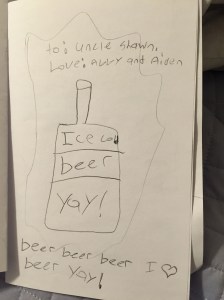 to: uncle shawn,
Love: Avvy and Aiden
Ice col
beer
yay!
beer beer beer I ♡
beer yay!